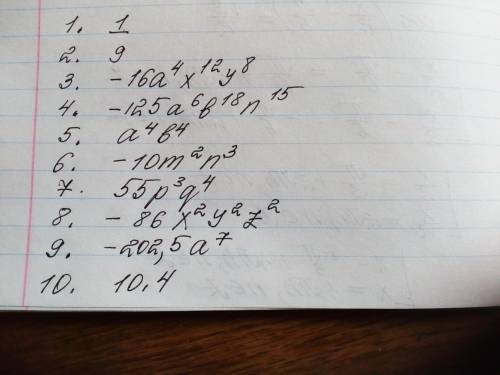 1. 1
2. 9
3. -16a⁴x¹²y⁸
4. -125a⁶b¹⁸n¹⁵
5. a⁴b⁴
6. -10m²n³
7. 55p³q⁴
8. -86x²y²z²
9. -202,5a⁷
10. 10.4